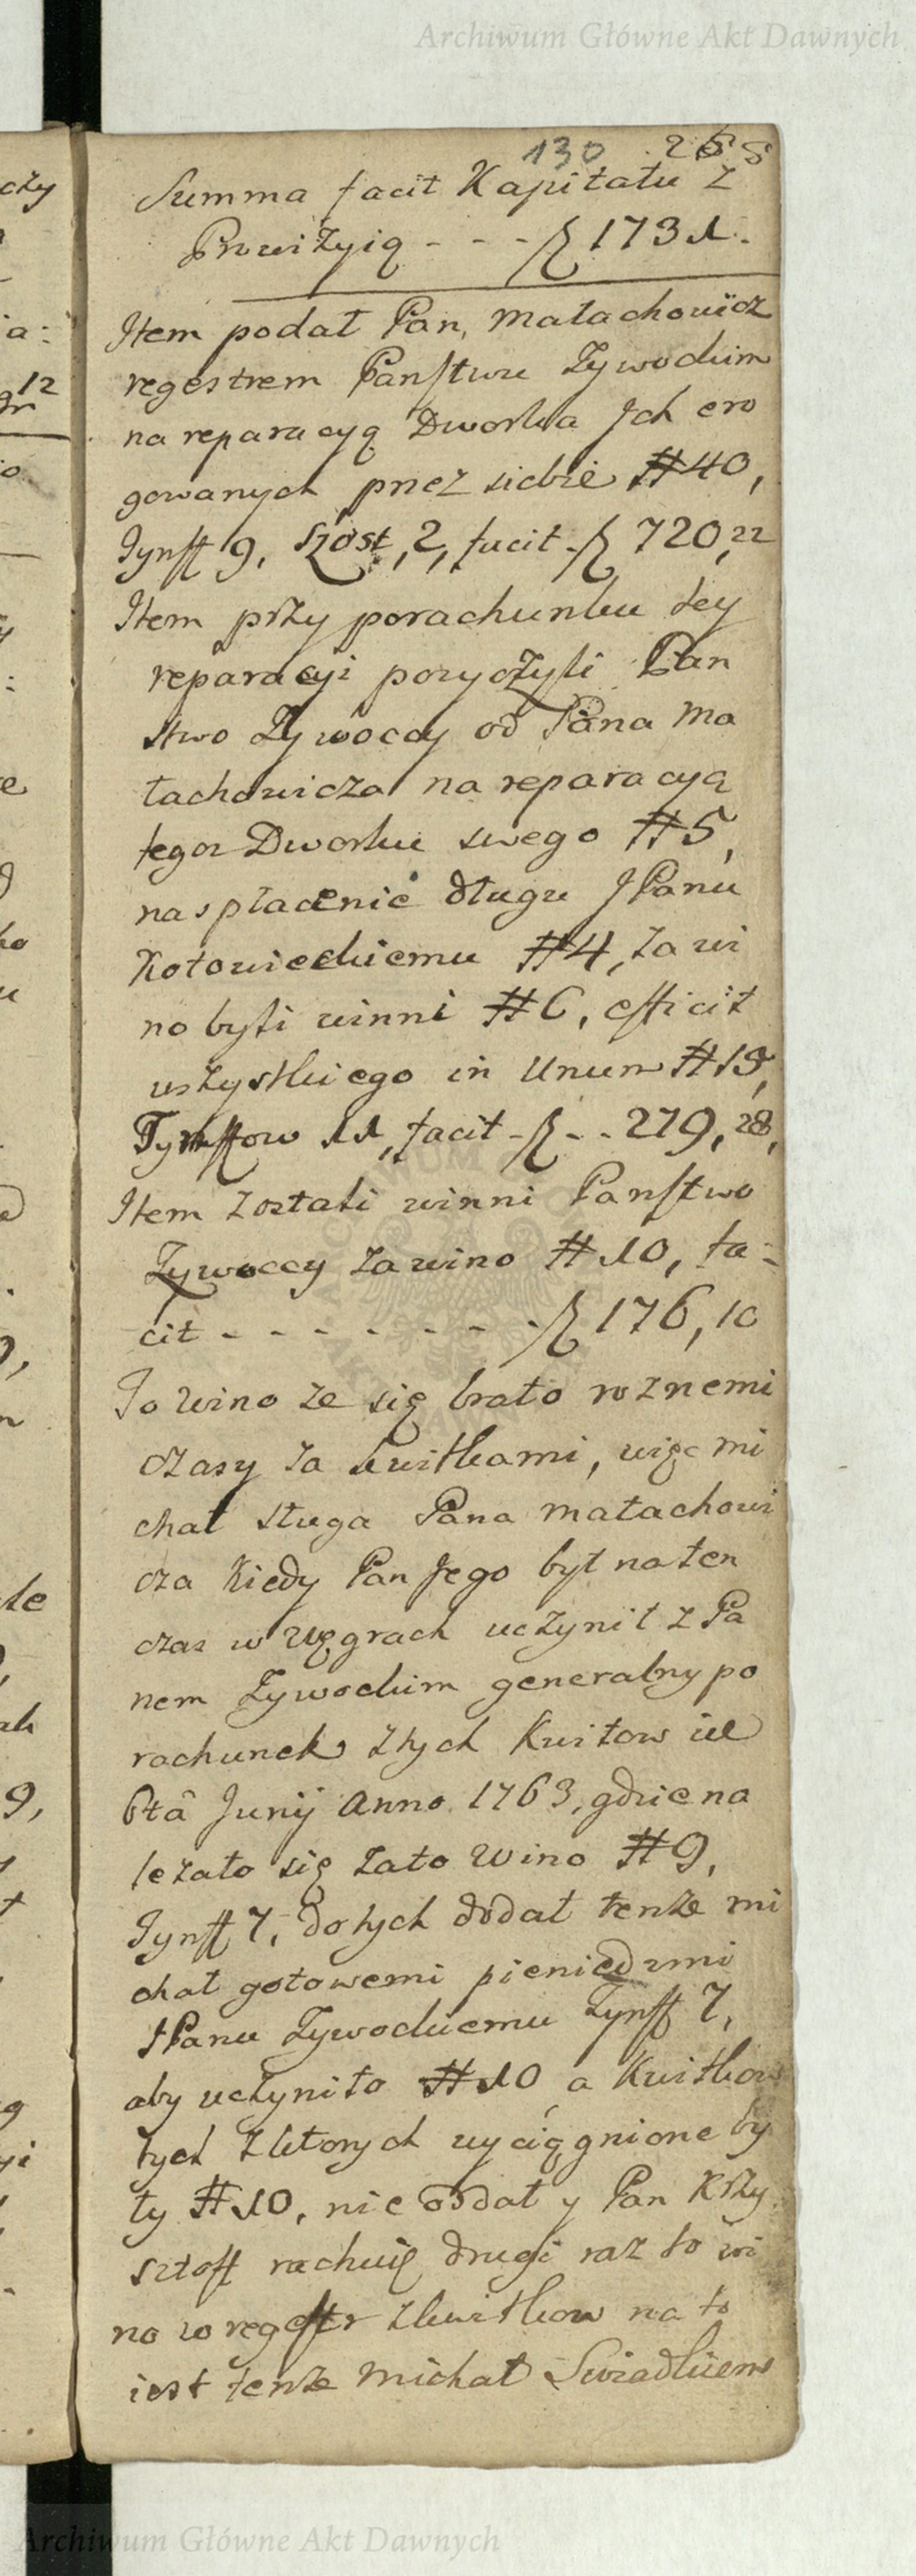 Archiwum Główne Akt Dawnych
130 255
Summa facit Kapitału z
Prowizyią - - - 1731.
Item podał Pan, Małachowicz
regestrem Panstwu Zywockim
na reparacyą Dworku Jch ero
gowanych przez siebie # 40,
Tynff 9, Szóst, 2, facit - 720,22
Item przy porachunku tey
reparacyi pozyczyli Pan
stwo Zywoccy od Pana Ma
łachowicza na reparacyą
tegoz Dworku swego # 5,
na spłacenie długu JPanu
Kotowieckiemu # 4, za wi
no byli winni # 6, efficit
wszystkiego in Unum # 15,
Tynffow 11, facit - - - 279, 28,
Item zostali winni Panstwo
Zywoccy za wino # 10, fa=
cit - - - - - - - - 176, 10
To wino ze się brało roznemi
czasy za kwitkami, więc Mi
chał sługa Pana Małachowi
cza kiedy Pan Jego był na ten
czas w Węgrach uczynił z Pa
nem Zywockim generalny po
rachunek z tych Kwitow ile
6tâ Junij Anno 1763, gdzie na
lezało się za to Wino # 9,
Tynff 7, do tych dodał tenze Mi
chał gotowemi pieniędzmi
JPanu Zywockiemu Tynff 7,
aby uczyniło # 10, a Kwitkow
tych z ktorych wyciągnione by
ły # 10, nie oddał y Pan Krzy
sztoff rachuię drugi raz to wi
no w regestr z kwitkow na to
iest tenze Michał Swiadkiem
Archiwum Główne Akt Dawnych